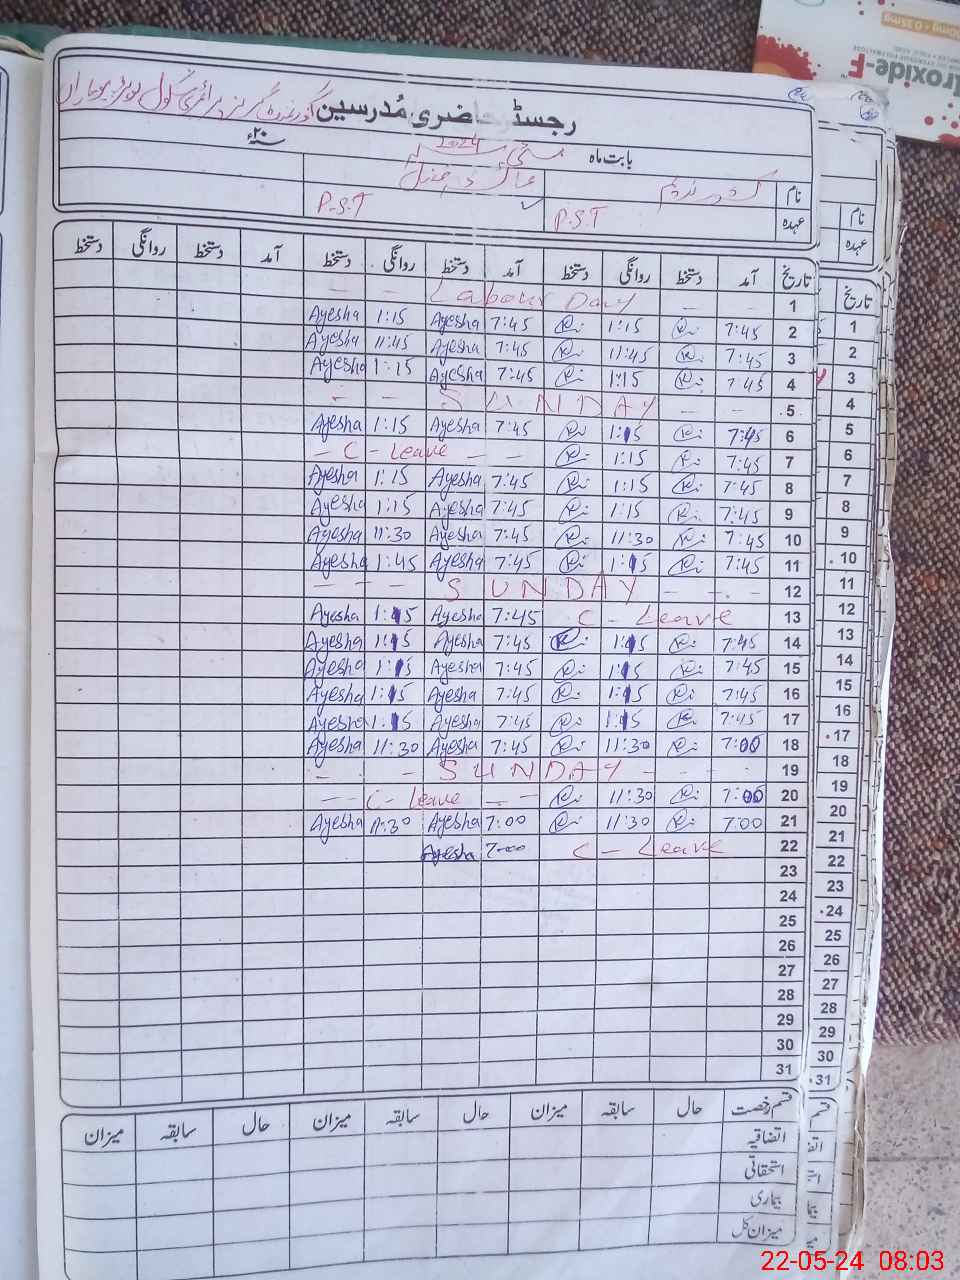 رجسٹر حاضری مُدرسین گورنمنٹ گرلز پرائمری سکول
بابت ماہ مئی 2024 ۲۰ء
نام کشور ندیم
عہدہ P.S.T P.S.T
تاریخ آمد دستخط روانگی دستخط آمد دستخط روانگی دستخط آمد دستخط روانگی دستخط
1 Labour Day
2 7:45 1:15 7:45 Ayesha 1:15 Ayesha
3 7:45 11:45 7:45 Ayesha 11:45 Ayesha
4 7:45 1:15 7:45 Ayesha 1:15 Ayesha
5 SUNDAY
6 7:45 1:15 7:45 Ayesha 1:15 Ayesha
7 7:45 1:15 C - Leave
8 7:45 1:15 7:45 Ayesha 1:15 Ayesha
9 7:45 1:15 7:45 Ayesha 1:15 Ayesha
10 7:45 11:30 7:45 Ayesha 11:30 Ayesha
11 7:45 1:15 7:45 Ayesha 1:45 Ayesha
12 SUNDAY
13 C - Leave 7:45 Ayesha 1:15 Ayesha
14 7:45 1:15 7:45 Ayesha 1:15 Ayesha
15 7:45 1:15 7:45 Ayesha 1:15 Ayesha
16 7:45 1:15 7:45 Ayesha 1:15 Ayesha
17 7:45 1:15 7:45 Ayesha 1:15 Ayesha
18 7:00 11:30 7:45 Ayesha 11:30 Ayesha
19 SUNDAY
20 7:00 11:30 C - Leave
21 7:00 11:30 7:00 Ayesha 11:30 Ayesha
22 C - Leave 7:00 Ayesha
23
24
25
26
27
28
29
30
31
قسم رخصت حال سابقہ میزان حال سابقہ میزان حال سابقہ میزان
اتفاقیہ
استحقاقی
بیماری
میزان کل
نام
عہدہ
تاریخ
1
2
3
4
5
6
7
8
9
10
11
12
13
14
15
16
17
18
19
20
21
22
23
24
25
26
27
28
29
30
31
roxide-F
0.35mg
22-05-24 08:03